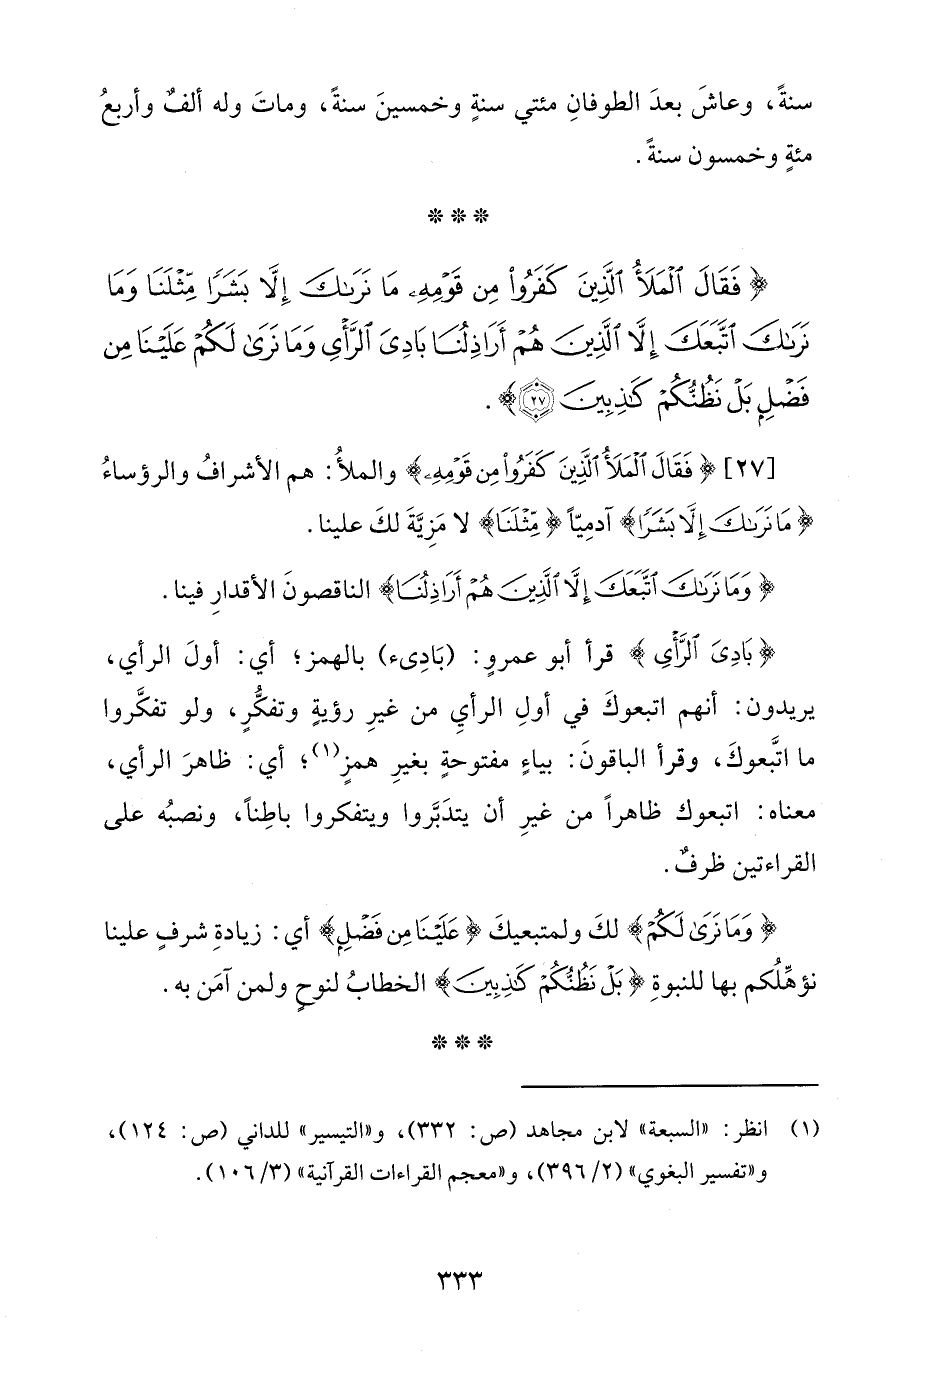 سنةً، وعاشَ بعدَ الطوفانِ مئتي سنةٍ وخمسينَ سنةً، وماتَ وله ألفٌ وأربعُ
مئةٍ وخمسون سنةً.
* * *
﴿فَقَالَ ٱلْمَلَأُ ٱلَّذِينَ كَفَرُوا۟ مِن قَوْمِهِۦ مَا نَرَىٰكَ إِلَّا بَشَرًا مِّثْلَنَا وَمَا
نَرَىٰكَ ٱتَّبَعَكَ إِلَّا ٱلَّذِينَ هُمْ أَرَاذِلُنَا بَادِىَ ٱلرَّأْىِ وَمَا نَرَىٰ لَكُمْ عَلَيْنَا مِن
فَضْلٍۭ بَلْ نَظُنُّكُمْ كَـٰذِبِينَ ٢٧﴾.
[٢٧] ﴿فَقَالَ ٱلْمَلَأُ ٱلَّذِينَ كَفَرُوا۟ مِن قَوْمِهِۦ﴾ والملأُ: هم الأشرافُ والرؤساءُ
﴿مَا نَرَىٰكَ إِلَّا بَشَرًا﴾ آدمِيّاً ﴿مِّثْلَنَا﴾ لا مَزِيَّةَ لكَ علينا.
﴿وَمَا نَرَىٰكَ ٱتَّبَعَكَ إِلَّا ٱلَّذِينَ هُمْ أَرَاذِلُنَا﴾ الناقصونَ الأقدارِ فينا.
﴿بَادِىَ ٱلرَّأْىِ﴾ قرأ أبو عمرٍو: (بَادِىء) بالهمز؛ أي: أولَ الرأي،
يريدون: أنهم اتبعوكَ في أولِ الرأيِ من غيرِ رؤيةٍ وتفكُّرٍ، ولو تفكَّروا
ما اتَّبعوكَ، وقرأ الباقونَ: بياءٍ مفتوحةٍ بغيرِ همزٍ(١)؛ أي: ظاهرَ الرأي،
معناه: اتبعوك ظاهراً من غيرِ أن يتدَبَّروا ويتفكروا باطِناً، ونصبُه على
القراءتين ظرفٌ.
﴿وَمَا نَرَىٰ لَكُمْ﴾ لكَ ولمتبعيكَ ﴿عَلَيْنَا مِن فَضْلٍ﴾ أي: زيادةِ شرفٍ علينا
نؤهِّلُكم بها للنبوةِ ﴿بَلْ نَظُنُّكُمْ كَـٰذِبِينَ﴾ الخطابُ لنوحٍ ولمن آمَن به.
* * *
(١) انظر: «السبعة» لابن مجاهد (ص: ٣٣٢)، و«التيسير» للداني (ص: ١٢٤)،
و«تفسير البغوي» (٢/ ٣٩٦)، و«معجم القراءات القرآنية» (٣/ ١٠٦).
٣٣٣